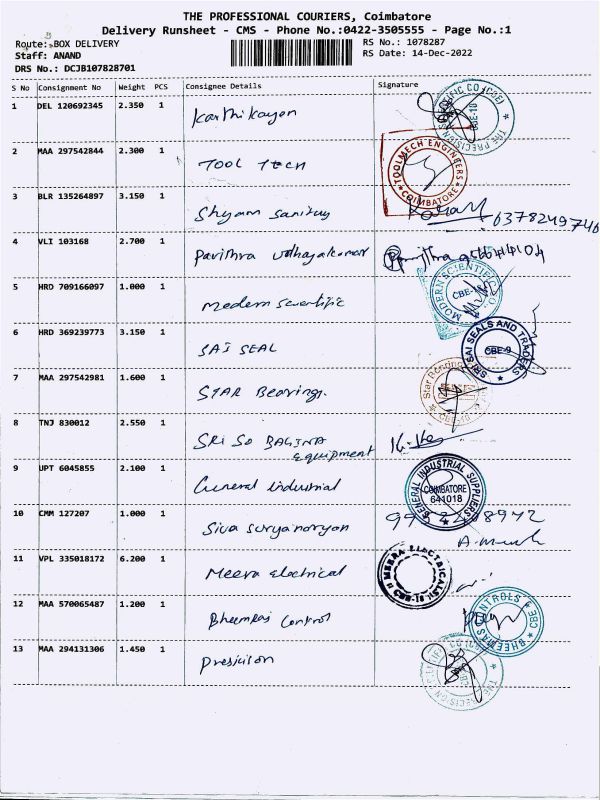 THE PROFESSIONAL COURIERS, Coimbatore
Delivery Runsheet - CMS - Phone No.:0422-3505555 - Page No.:1
Route: BOX DELIVERY
RS No.: 1078287
Staff: ANAND
RS Date: 14-Dec-2022
DRS No.: DCJB107828701
S No Consignment No Weight PCS Consignee Details Signature
1 DEL 120692345 2.350 1 Karthikayon
2 MAA 297542844 2.300 1 TOOL Tech
TOOLMECH ENGINEERS
COIMBATORE
3 BLR 135264897 3.150 1 Shyam Sanitary
6378249746
4 VLI 103168 2.700 1 Pavithra Udhayakumar
5 HRD 709166097 1.000 1 modern scientific
MODERN SCIENTIFIC CO.
6 HRD 369239773 3.150 1 SAI SEAL
SRI SAI SEALS AND TRADERS
CBE-9
7 MAA 297542981 1.600 1 STAR Bearings.
8 TNJ 830012 2.550 1 SRI
equipment
9 UPT 6045855 2.100 1 General industrial
GENERAL INDUSTRIAL SUPPLIERS
COIMBATORE
641018
10 CMM 127207 1.000 1 Siva Suryanaryon
11 VPL 335018172 6.200 1 Meera electrical
MEERA ELECTRICALS
CBE-18
12 MAA 570065487 1.200 1 Bheemas Control
BHEEMAS CONTROLS
CBE
13 MAA 294131306 1.450 1 Presicison